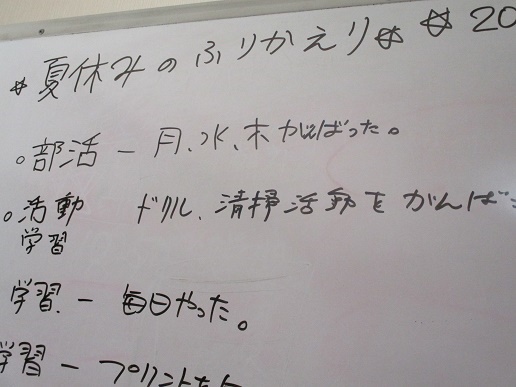 ☆夏休みのふりかえり☆ ☆20
。部活ー月、水、木がんばった。
。活動 ドリル、清掃活動をがんば
学習
学習ー毎日やった。
学習ープリントを